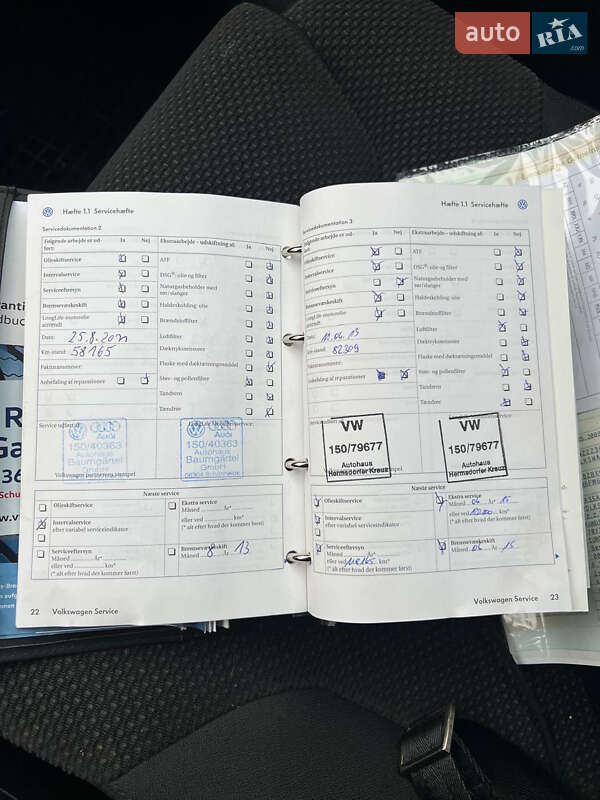 auto RIA.com
Hæfte 1.1 Servicehæfte
Servicedokumentation 2
Følgende arbejde er udført: Ja Nej
Olieskiftservice
Intervalservice
Serviceeftersyn
Bremsevæskeskift
LongLife-motorolie anvendt
Dato: 25.8.2011
Km-stand: 58165
Fakturanummer:
Anbefaling af reparationer
Ekstraarbejde - udskiftning af: Ja Nej
ATF
DSG®-olie og filter
Naturgasbeholder med rør/slanger
Haldexkobling: olie
Brændstoffilter
Luftfilter
Dæktryksensorer
Flaske med dæktætningsmiddel
Støv- og pollenfilter
Tandrem
Tændrør
Service udført af:
LongLife Mobilitetsservice:
Audi
150/40363
Autohaus
Baumgärtel
GmbH
Volkswagen partnerens stempel
Audi
150/40363
Autohaus
Baumgärtel
GmbH
Næste service
Olieskiftservice
Intervalservice
efter variabel serviceindikator
Serviceeftersyn
Måned ... År*
eller ved ... km*
(* alt efter hvad der kommer først)
Ekstra service
Måned ... År*
eller ved ... km*
(* alt efter hvad der kommer først)
Bremsevæskeskift
Måned 8 År 13
22 Volkswagen Service
Hæfte 1.1 Servicehæfte
Servicedokumentation 3
Følgende arbejde er udført: Ja Nej
Olieskiftservice
Intervalservice
Serviceeftersyn
Bremsevæskeskift
LongLife-motorolie anvendt
Dato: 11.06.13
Km-stand: 82309
Fakturanummer:
Anbefaling af reparationer
Ekstraarbejde - udskiftning af: Ja Nej
ATF
DSG®-olie og filter
Naturgasbeholder med rør/slanger
Haldexkobling: olie
Brændstoffilter
Luftfilter
Dæktryksensorer
Flaske med dæktætningsmiddel
Støv- og pollenfilter
Tandrem
Tændrør
VW
150/79677
Autohaus
Hermsdorfer Kreuz
VW
150/79677
Autohaus
Hermsdorfer Kreuz
Næste service
Olieskiftservice
Intervalservice
efter variabel serviceindikator
Serviceeftersyn
Måned ... År*
eller ved ... km*
(* alt efter hvad der kommer først)
Ekstra service
Måned 06 År* 15
eller ved ... km*
(* alt efter hvad der kommer først)
Bremsevæskeskift
Måned 06 År 15
Volkswagen Service 23